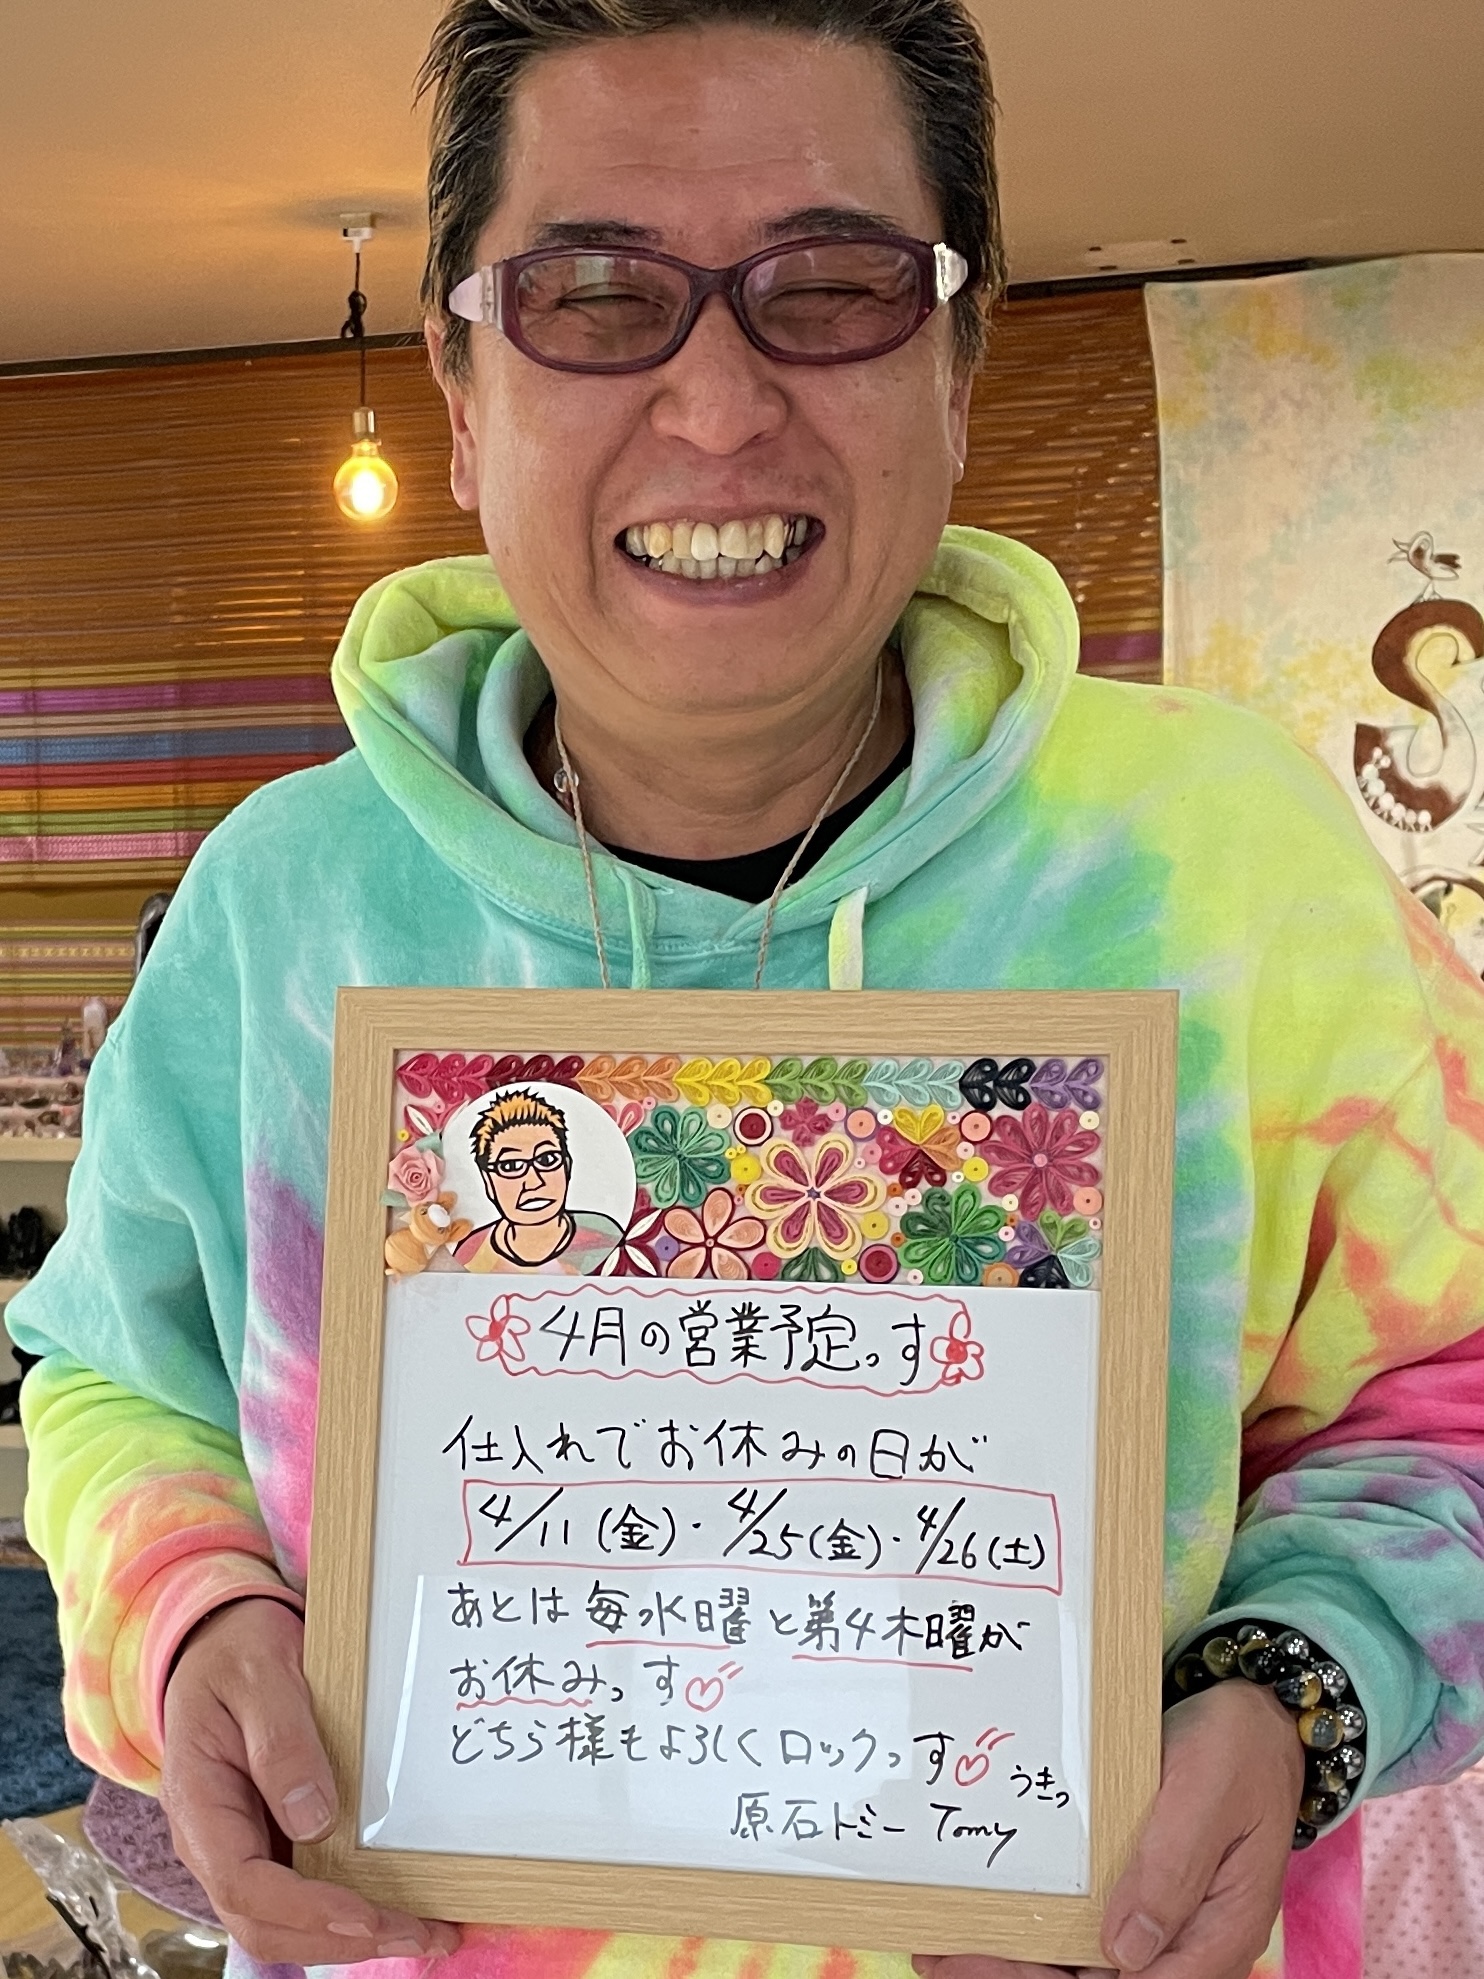 4月の営業予定っす
仕入れでお休みの日が
4/11(金)・4/25(金)・4/26(土)
あとは毎水曜と第4木曜が
お休みっす♡
どちら様もよろしくロックっす♡
うきっ
原石トミー Tomy